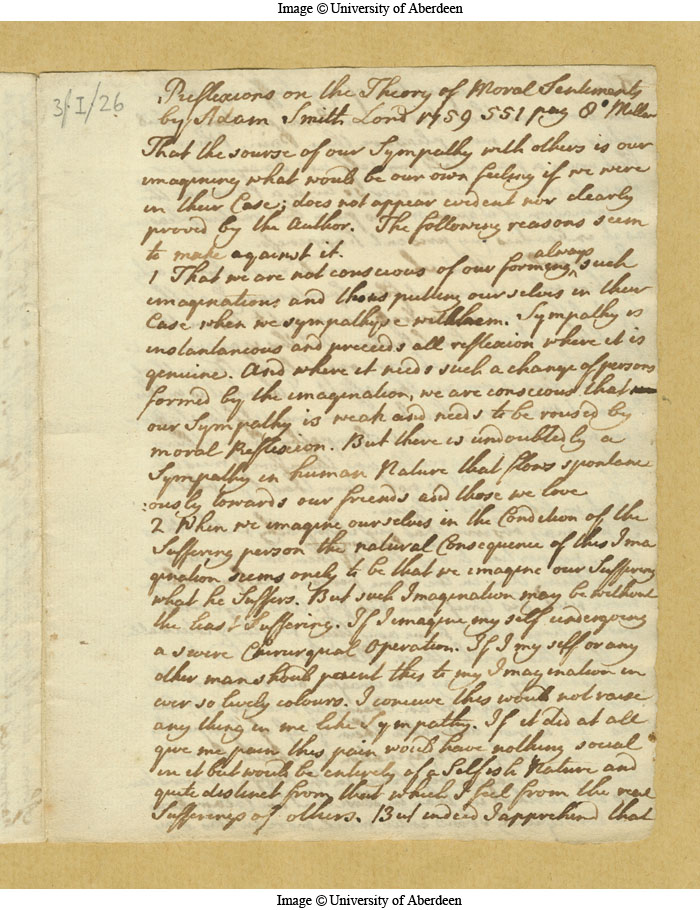 Image © University of Aberdeen
3/I/26
Reflexions on the Theory of Moral Sentiments
by Adam Smith Lond 1759 551 pag 8° Millar
That the sourse of our Sympathy with others is our
imagining what would be our own feeling if we were
in their Case; does not appear evident nor clearly
proved by the Author. The following reasons seem
to make against it.
always
1 That we are not conscious of our forming such
imaginations and thus putting ourselves in their
Case when we sympathise with them. Sympathy is
instantaneous and preceeds all reflexion where it is
genuine. And where it needs such a change of persons
formed by the imagination, we are conscious that
our Sympathy is weak and needs to be roused by
moral Reflexion. But there is undoubtedly a
Sympathy in human Nature that flows spontane
:ously towards our friends and those we love
2 When we imagine ourselves in the Condition of the
Suffering person the natural Consequence of this Ima
gination seems onely to be that we imagine our Suffering
what he Suffers. But such Imagination may be without
the least Suffering. If I imagine my self undergoing
a severe Chirurgical Operation. If I my self or any
other man should present this to my Imagination in
ever so lively colours. I conceive this would not raise
any thing in me like Sympathy. If it did at all
give me pain this pain would have nothing social
in it but would be entirely of a Selfish Nature and
quite distinct from that which I feel from the real
Sufferings of others. But indeed I apprehend that
Image © University of Aberdeen